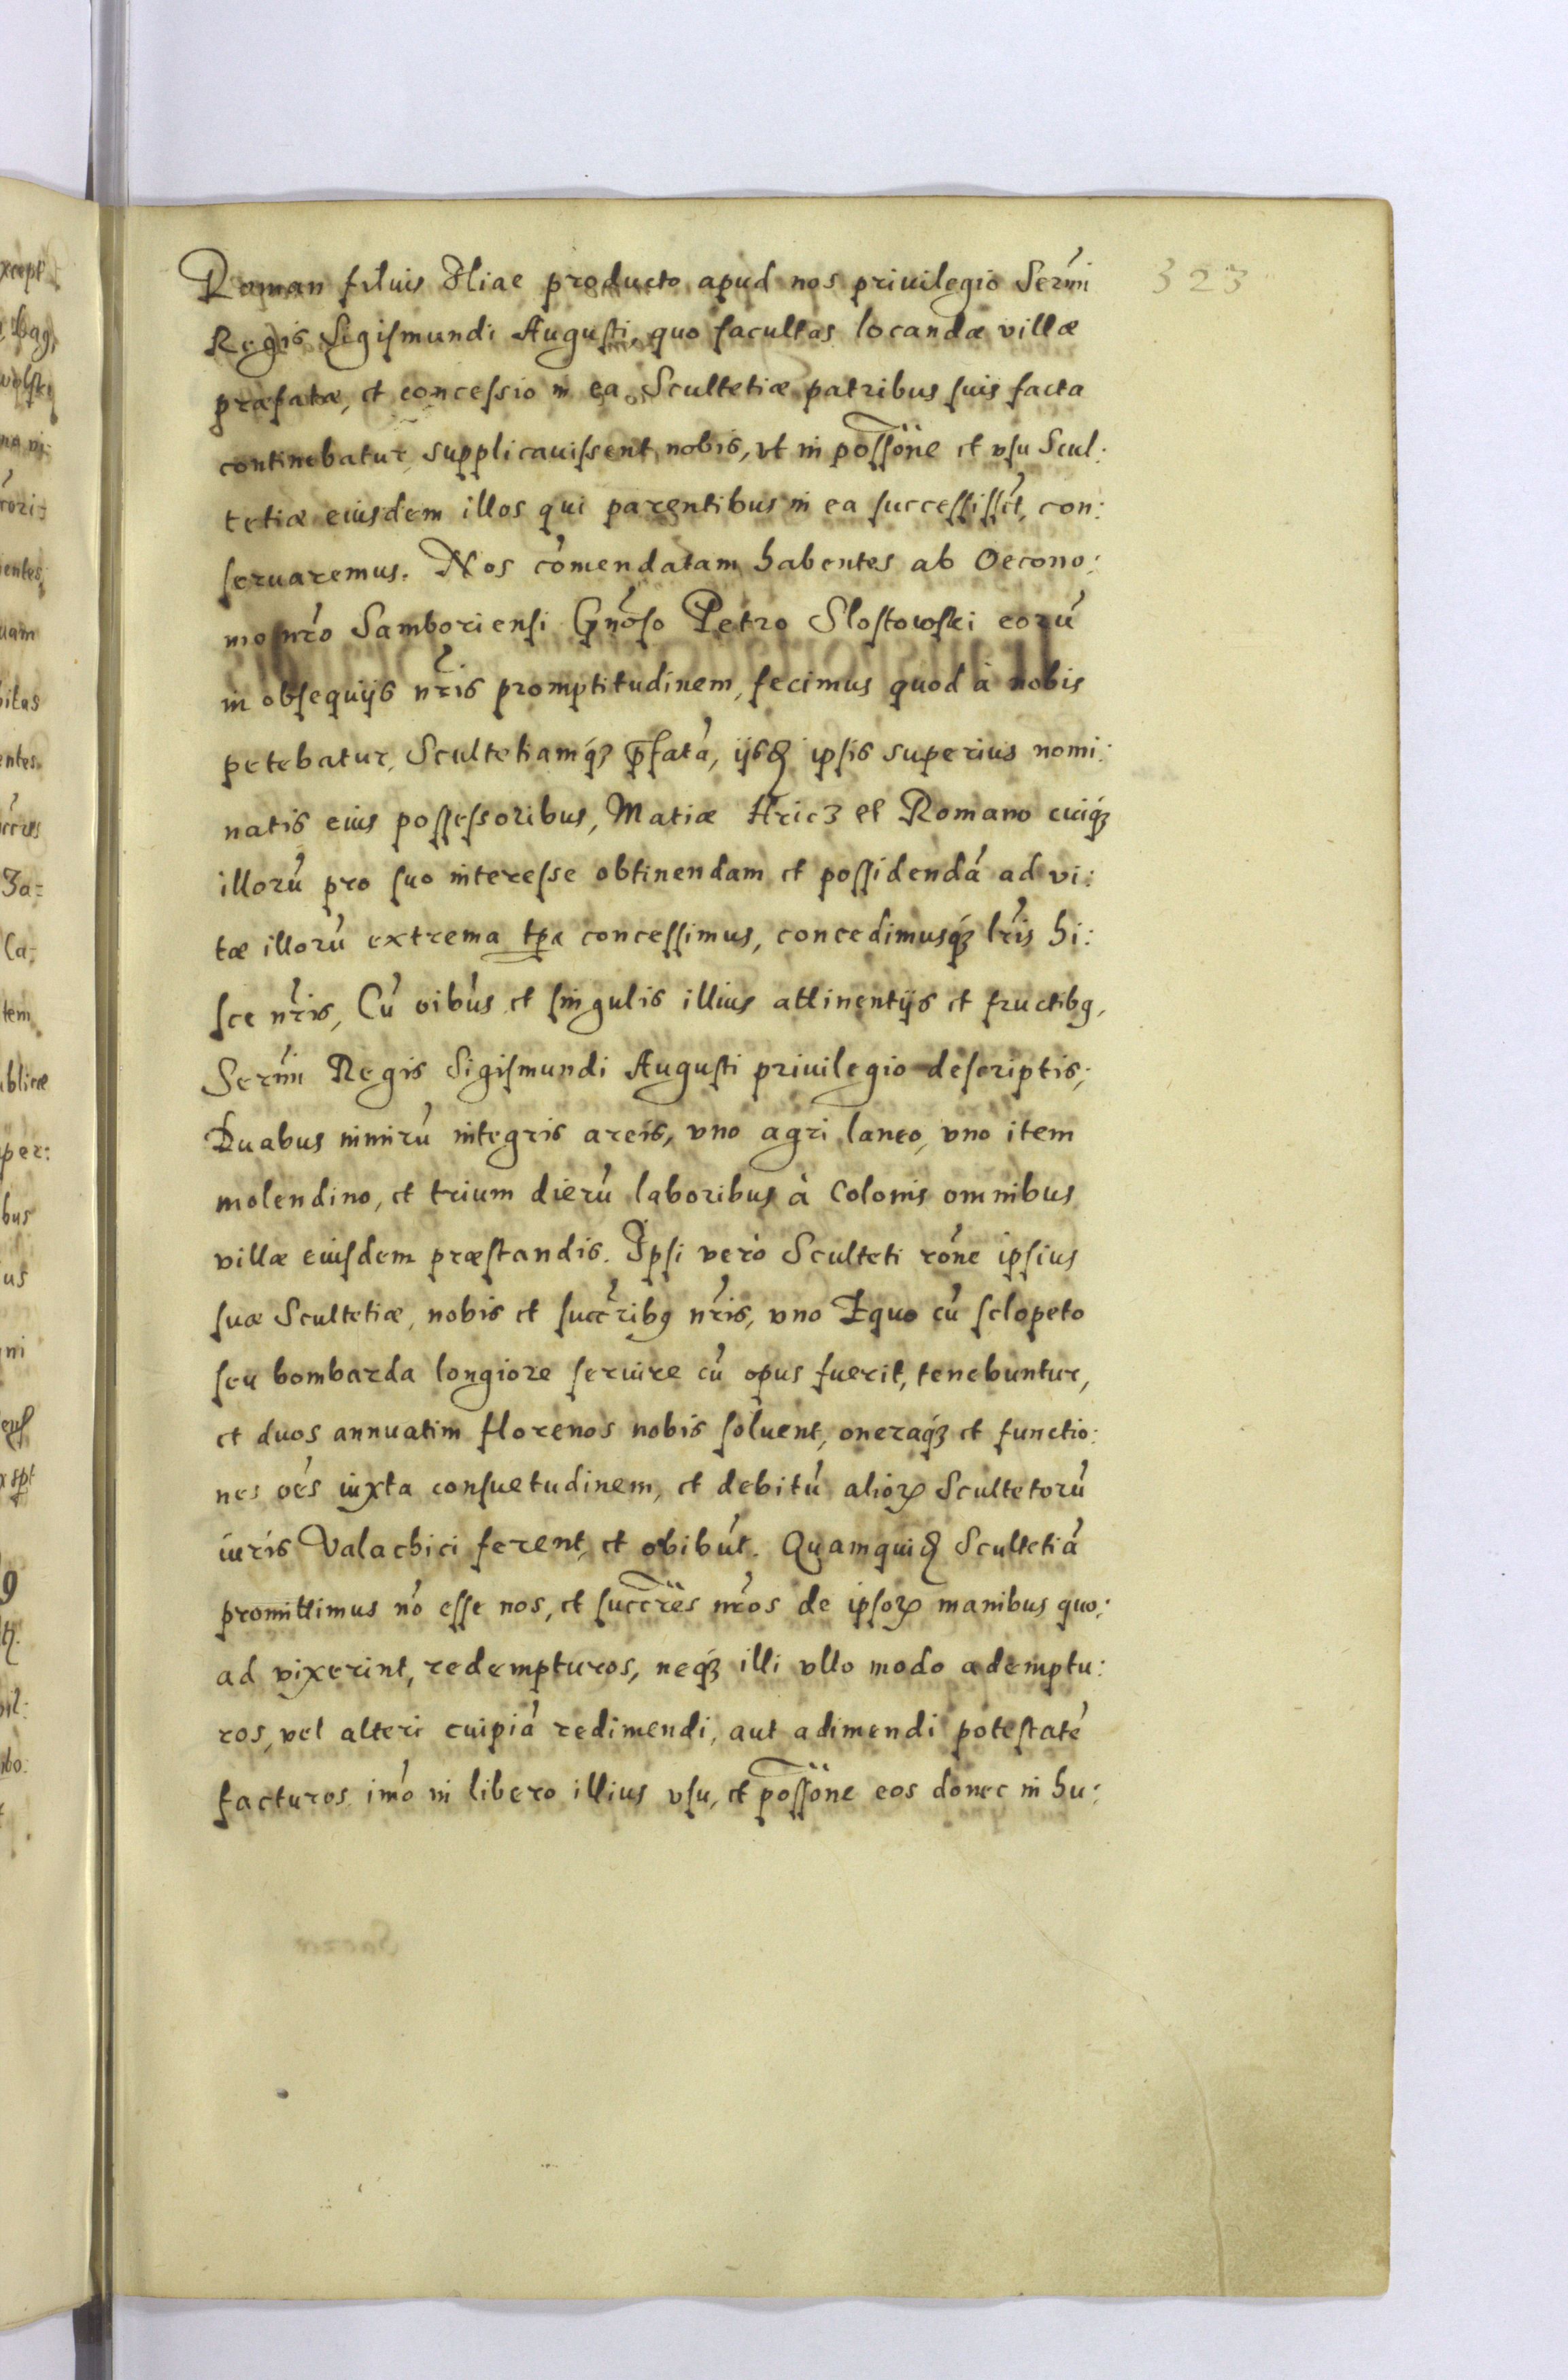 323
Roman filius Iliae producto apud nos priuilegio Sermi
Regis Sigismundi Augusti, quo facultas locandæ villæ
præfatæ, et concessio in ea Scultetiæ patribus suis facta
continebatur, supplicauissent nobis, vt in possone et vsu Scul:
tetiæ eiusdem illos qui parentibus in ea successissēt, con:
seruaremus. Nos cōmendatam habentes ab Oecono:
mo nrō Samboriensi Gnōso Petro Slostowski eorū
in obsequijs nrīs promptitudinem, fecimus quod à nobis
petebatur, Scultetiamq́ꝫ p̄fatā, ijsdē ipsis superius nomi:
natis eius possessoribus, Matiæ Hricz et Romano cuiq́ꝫ
illorū pro suo interesse obtinendam et possidendā ad vi:
tæ illorū extrema tp̄a concessimus, concedimusq́ꝫ lrīs hi:
sce nrīs, Cū oibūs et singulis illius attinentijs et fructibꝯ,
Sermi Regis Sigismundi Augusti priuilegio descriptis;
Duabus nimirū integris areis, vno agri laneo, vno item
molendino, et trium dierū laboribus à Colonis omnibus
villæ eiusdem præstandis. Ipsi verò Sculteti rōne ipsius
suæ Scultetiæ, nobis et succribꝯ nrīs, vno Equo cū sclopeto
seu bombarda longiore seruire cū opus fuerit, tenebuntur,
et duos annuatim florenos nobis soluent, oneraq́ꝫ et functio:
nes oēs iuxta consuetudinem, et debitū alioꝝ Scultetorū
iuris Valachici ferent, et obibūt. Quamquidē Scultetiā
promittimus nō esse nos, et succrēs nrōs de ipsoꝝ manibus quo:
ad vixerint, redempturos, neq́ꝫ illi vllo modo ademptu:
ros, vel alteri cuipiā redimendi, aut adimendi potestatē
facturos imō in libero illius vsu, et possōne eos donec in hu: